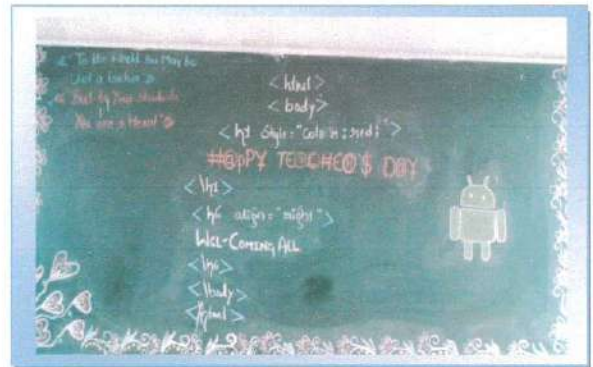 " To the World You May be
Just a teacher "
" But to Your Students
You are a Hero! "
<html>
<body>
<h1 style="color:red;">
#@pPY TE@C#E@'$ D@Y
<\h1>
<h6 align="right">
WEL-COMING ALL
<\h6>
<\body>
<\html>